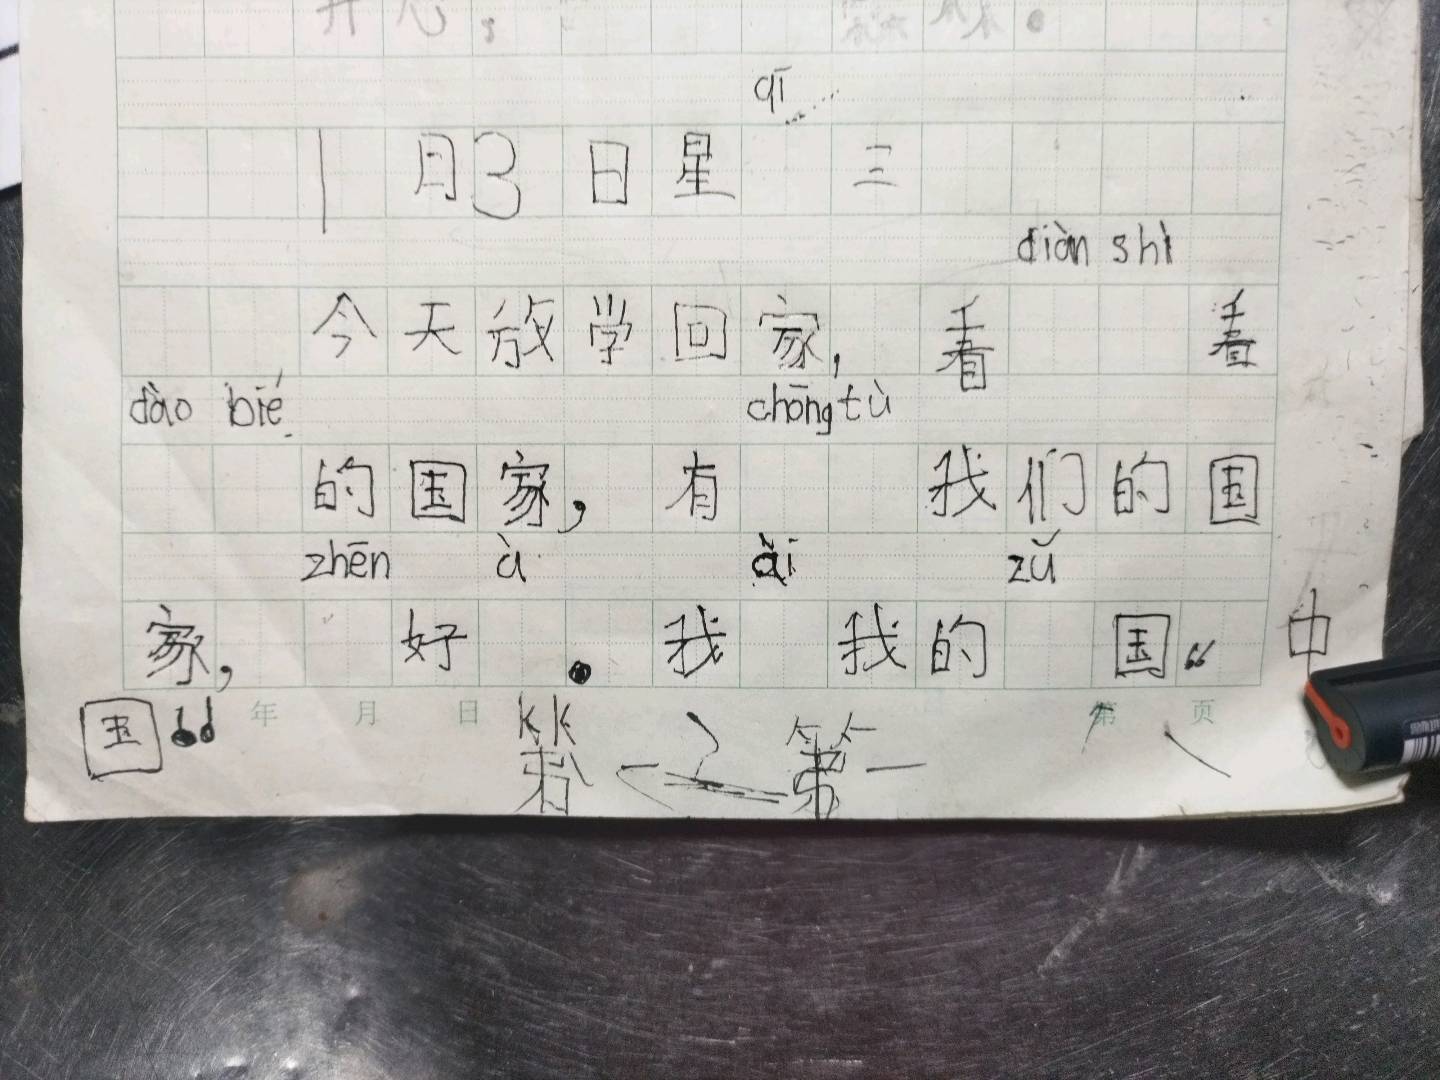 开心。
qī
1月3日星 三
diàn shì
今天放学回家,看 看
dào bié chōng tù
的国家,有 我们的国
zhēn à ài zǔ
家, 好 。我 我的 国“中
国“ 年 月 日 第一 第一 第 页